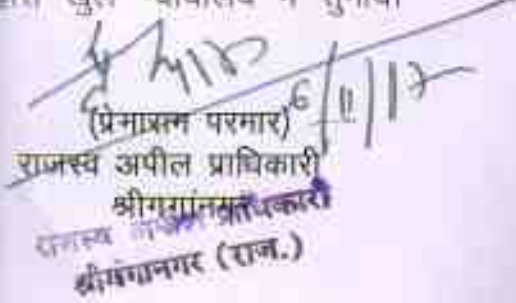 खुले न्यायालय में सुनाया
6/11/17
(प्रेमाराम परमार)
राजस्व अपील प्राधिकारी
श्रीगगांनगर
राजस्व अपील प्राधिकारी
श्रीगंगानगर (राज.)